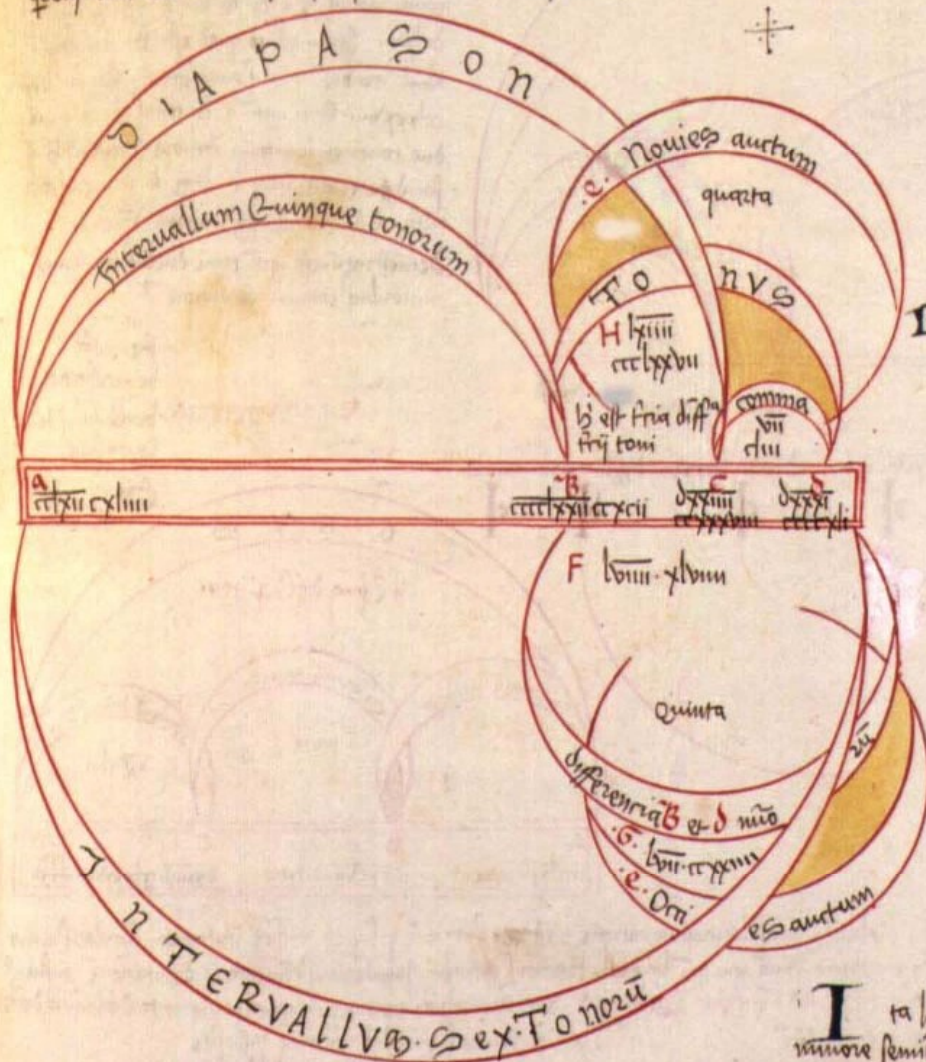 DIAPASON
Intervallum Quinque tonorum
.e. Novies auctum
quarta
TONVS
H lxiiii
ccclxxvii
comma
vii
cliii
h' est tria diffª
toni
A B C D
cclxii cxliiii
cccclxxii ccxcii
dxxiiii
cclxxxviii
dxxxi
ccccxli
F lviiii · xlviiii
Quinta
differencia B et d nūo
rū
.G. lvii · ccxxiiii
.e. Octi
es auctum
InTERVALLVm · Sex · Tonorū
Ita
minore semi